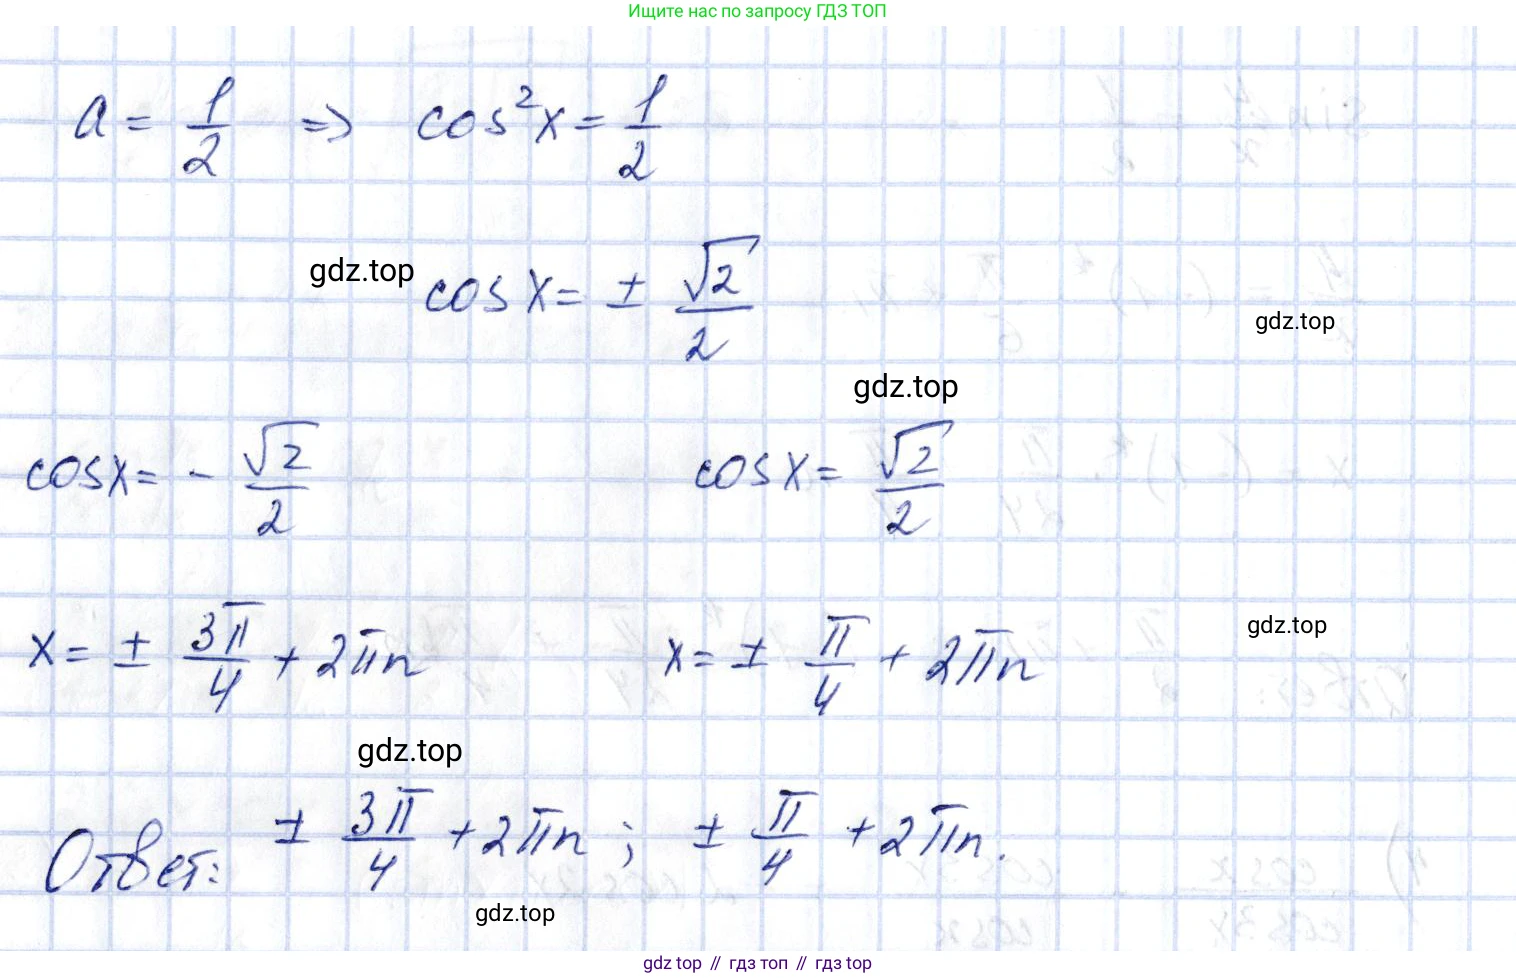 Ищите нас по запросу ГДЗ ТОП
a = 1/2 => cos²x = 1/2
gdz.top
cos x = ± √2/2
gdz.top
gdz.top
cos x = - √2/2 cos x = √2/2
x = ± 3π/4 + 2πn x = ± π/4 + 2πn
gdz.top
gdz.top
Ответ: ± 3π/4 + 2πn ; ± π/4 + 2πn.
gdz.top
gdz top // гдз топ // гдз top